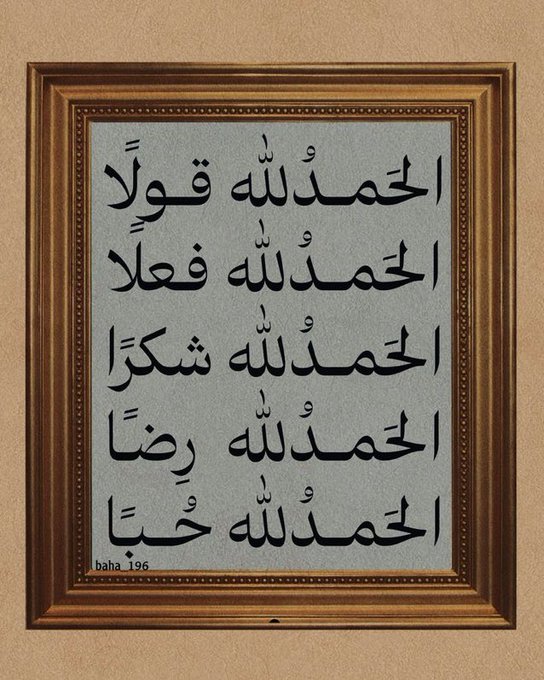 الحَمـدُلله قـولًا
الحَمـدُلله فـعلًا
الحَمـدُلله شكرًا
الحَمـدُلله رِضـًا
الحَمـدُلله حُـبًا
baha_196